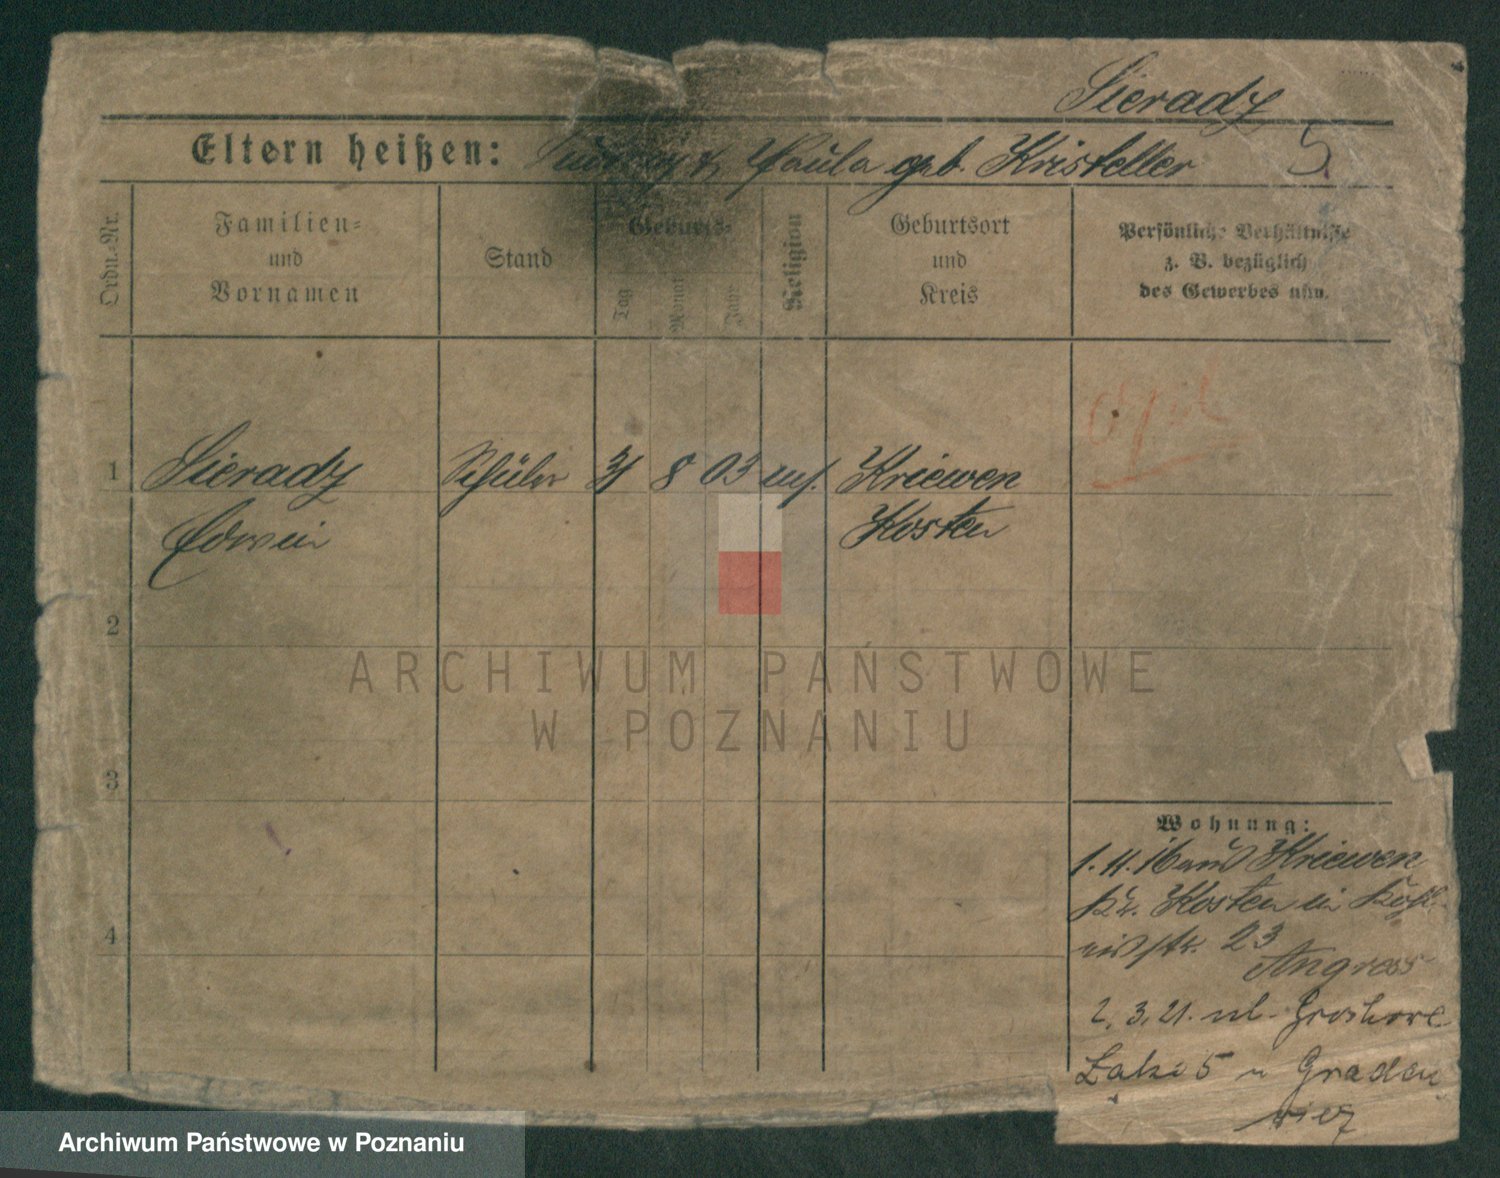 Sieradz
Eltern heißen: Ludwig u. Paula geb. Kristeller
5
Ordn.-Nr.
Familien=
und
Vornamen
Stand
Geburts=
Tag
Monat
Jahr
Religion
Geburtsort
und
Kreis
Persönliche Verhältnisse
z. B. bezüglich
des Gewerbes usw.
1
Sieradz Schüler 31 8 03 mos. Kriewen
Edwin Kosten
2
ARCHIWUM PAŃSTWOWE
W POZNANIU
3
Wohnung:
1. 4. 16 aus Kriewen
Kr. Kosten in
str. 23
4
Angress
2. 3. 21. ul. Groshowe
Łaki 5 u Graden
wicz
Archiwum Państwowe w Poznaniu